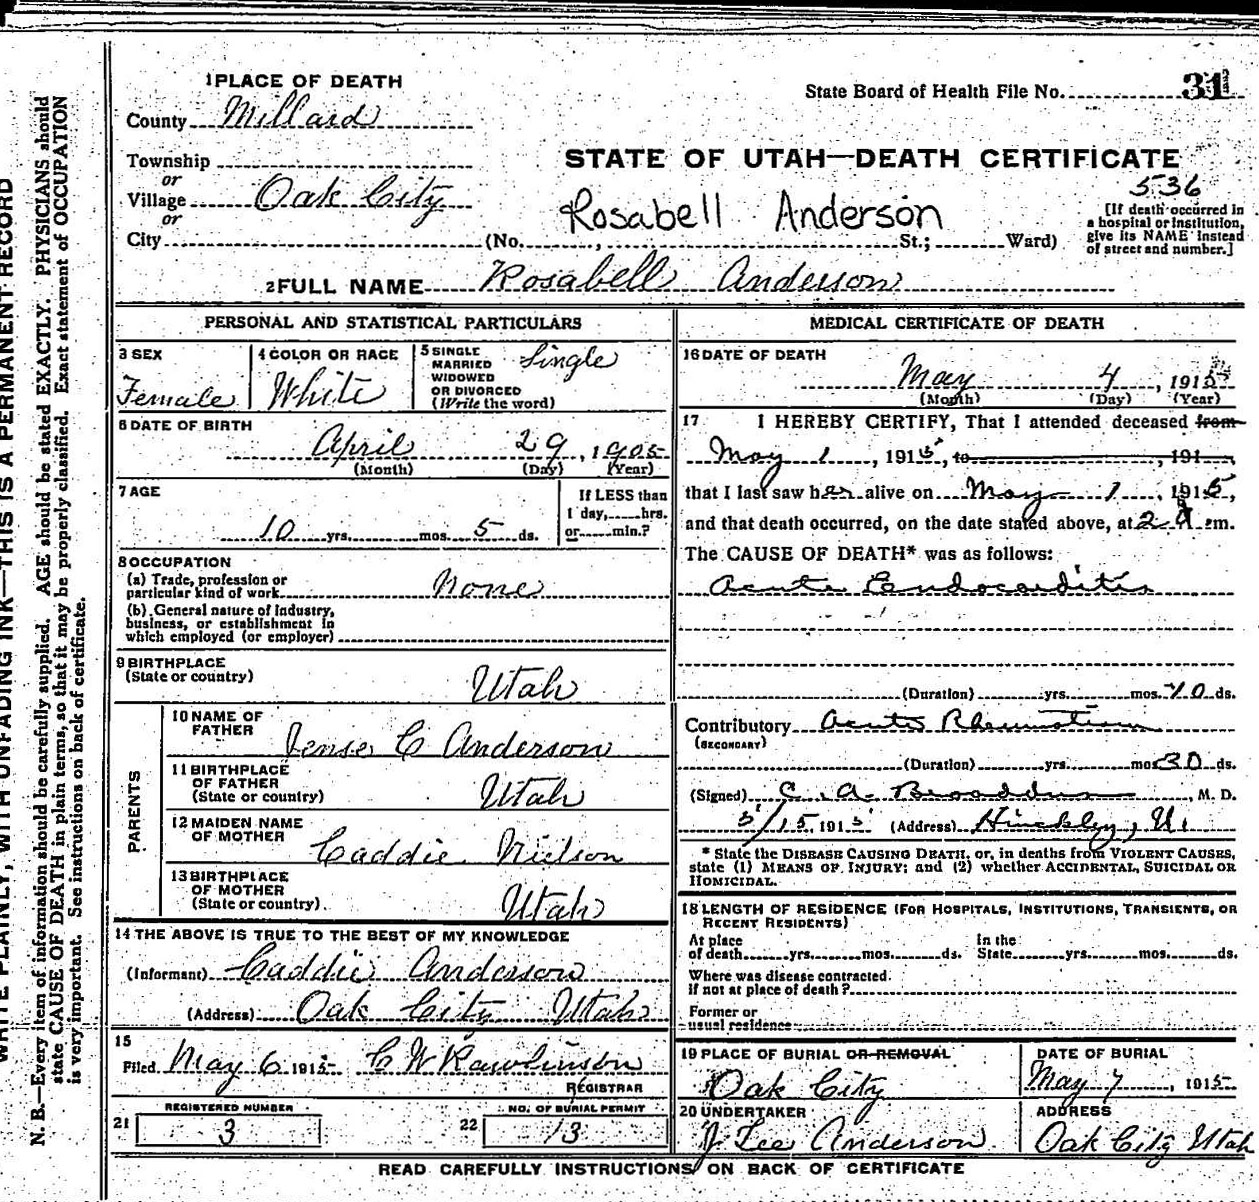 1 PLACE OF DEATH
State Board of Health File No. 31
County Millard
STATE OF UTAH—DEATH CERTIFICATE
Township
or
536
Village Oak City
or
Rosabell Anderson
[If death occurred in a hospital or institution, give its NAME instead of street and number.]
City (No. , St.; Ward)
2 FULL NAME Rosabell Anderson
PERSONAL AND STATISTICAL PARTICULARS
3 SEX
Female
4 COLOR OR RACE
White
5 SINGLE
MARRIED
WIDOWED
OR DIVORCED
(Write the word)
Single
6 DATE OF BIRTH
April 29, 1905
(Month) (Day) (Year)
7 AGE
10 yrs. mos. 5 ds.
If LESS than
1 day, hrs.
or min.?
8 OCCUPATION
(a) Trade, profession or
particular kind of work None
(b) General nature of industry,
business, or establishment in
which employed (or employer)
9 BIRTHPLACE
(State or country)
Utah
PARENTS
10 NAME OF
FATHER
Jense C Anderson
11 BIRTHPLACE
OF FATHER
(State or country)
Utah
12 MAIDEN NAME
OF MOTHER
Caddie Nielson
13 BIRTHPLACE
OF MOTHER
(State or country)
Utah
14 THE ABOVE IS TRUE TO THE BEST OF MY KNOWLEDGE
(Informant) Caddie Anderson
(Address) Oak City Utah
15
Filed May 6 1915 C W Rawlinson
REGISTRAR
21 REGISTERED NUMBER
3
22 NO. OF BURIAL PERMIT
13
MEDICAL CERTIFICATE OF DEATH
16 DATE OF DEATH
May 4, 1915
(Month) (Day) (Year)
17 I HEREBY CERTIFY, That I attended deceased from
May 1, 1915, to , 191 ,
that I last saw her alive on May 1, 1915,
and that death occurred, on the date stated above, at 2 m.
The CAUSE OF DEATH* was as follows:
Acute Endocarditis
(Duration) yrs. mos. 10 ds.
Contributory Acute Rheumatism
(SECONDARY)
(Duration) yrs. mos 30 ds.
(Signed) C. A. Broaddus, M. D.
5/15, 1915 (Address) Hinckley, U.
* State the DISEASE CAUSING DEATH, or, in deaths from VIOLENT CAUSES,
state (1) MEANS OF INJURY; and (2) whether ACCIDENTAL, SUICIDAL OR
HOMICIDAL.
18 LENGTH OF RESIDENCE (FOR HOSPITALS, INSTITUTIONS, TRANSIENTS, OR
RECENT RESIDENTS)
At place
of death yrs. mos. ds.
In the
State yrs. mos. ds.
Where was disease contracted.
if not at place of death?
Former or
usual residence
19 PLACE OF BURIAL OR REMOVAL
Oak City
DATE OF BURIAL
May 7, 1915
20 UNDERTAKER
J Lee Anderson
ADDRESS
Oak City Utah
READ CAREFULLY INSTRUCTIONS ON BACK OF CERTIFICATE
WRITE PLAINLY, WITH UNFADING INK—THIS IS A PERMANENT RECORD
N. B.—Every item of information should be carefully supplied. AGE should be stated EXACTLY. PHYSICIANS should
state CAUSE OF DEATH in plain terms, so that it may be properly classified. Exact statement of OCCUPATION
is very important. See instructions on back of certificate.